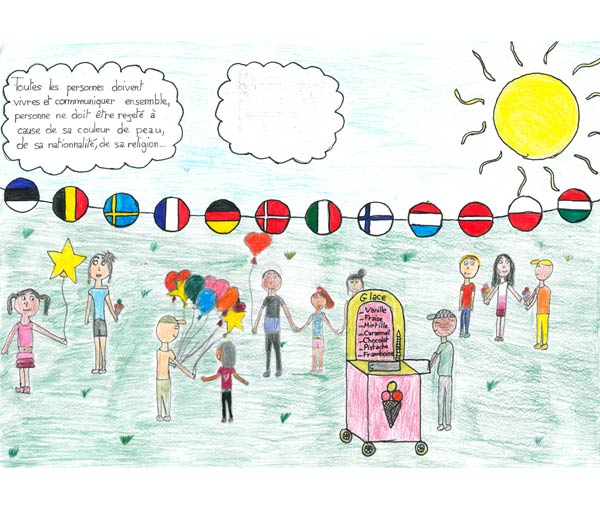 Toutes les personnes doivent
vivres et commmuniquer ensemble,
personne ne doit être rejeté à
cause de sa couleur de peau,
de sa nationnalité, de sa religion...
Glace
- Vanille
- Fraise
- Mirtille
- Caramel
- Chocolat
- Pistache
- Framboise